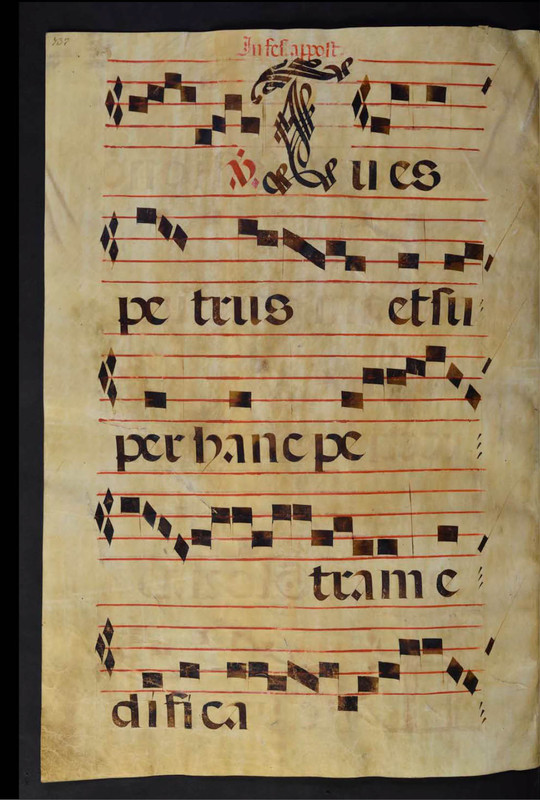 In fes. appost.
℣. Tu es
pe trus et su
per hanc pe
tram e
difica